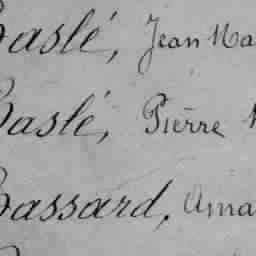 Baslé, Jean Ma
Baslé, Pierre
Bassard, Ama